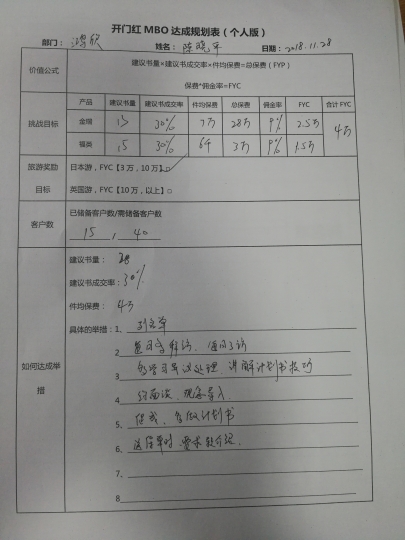 开门红 MBO 达成规划表（个人版）
部门： 姓名：陈晓平 日期：2018.11.28
价值公式
建议书量*建议书成交率*件均保费=总保费（FYP）
保费*佣金率=FYC
挑战目标
产品 建议书量 建议书成交率 件均保费 总保费 佣金率 FYC 合计 FYC
金瑞 13 30% 7万 28万 9% 2.5万 4万
福类 15 30% 3万 9% 1.5万
旅游奖励目标
日本游，FYC【3 万，10 万】□
英国游，FYC【10 万，以上】□
客户数
已储备客户数/需储备客户数
15 , 40
如何达成举措
建议书量：
建议书成交率：30%
件均保费：4万
具体的举措：1、列名单
2
3 讲解计划书技巧
4 约面谈、观念导入
5、 计划书
6、送保单时、要求转介绍.
7、
8